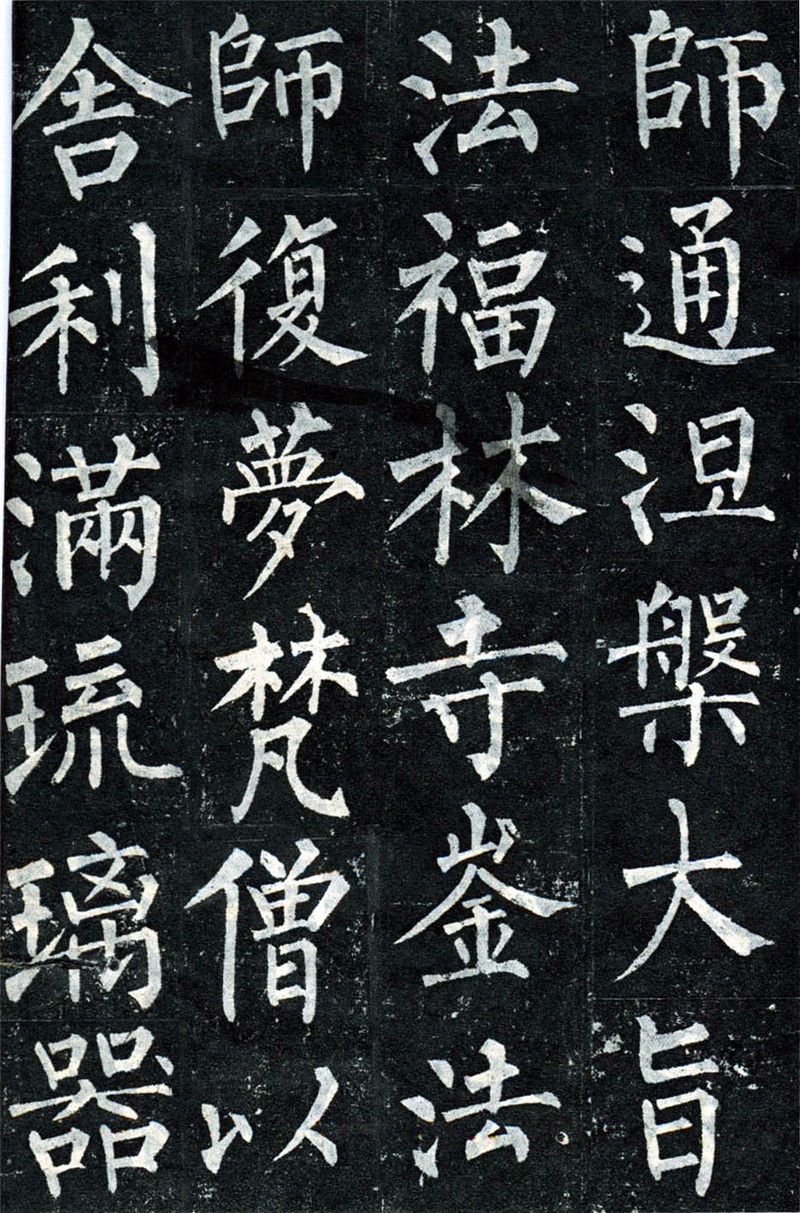 師通涅槃大旨
法福林寺崟法
師復夢梵僧以
舎利滿琉璃器